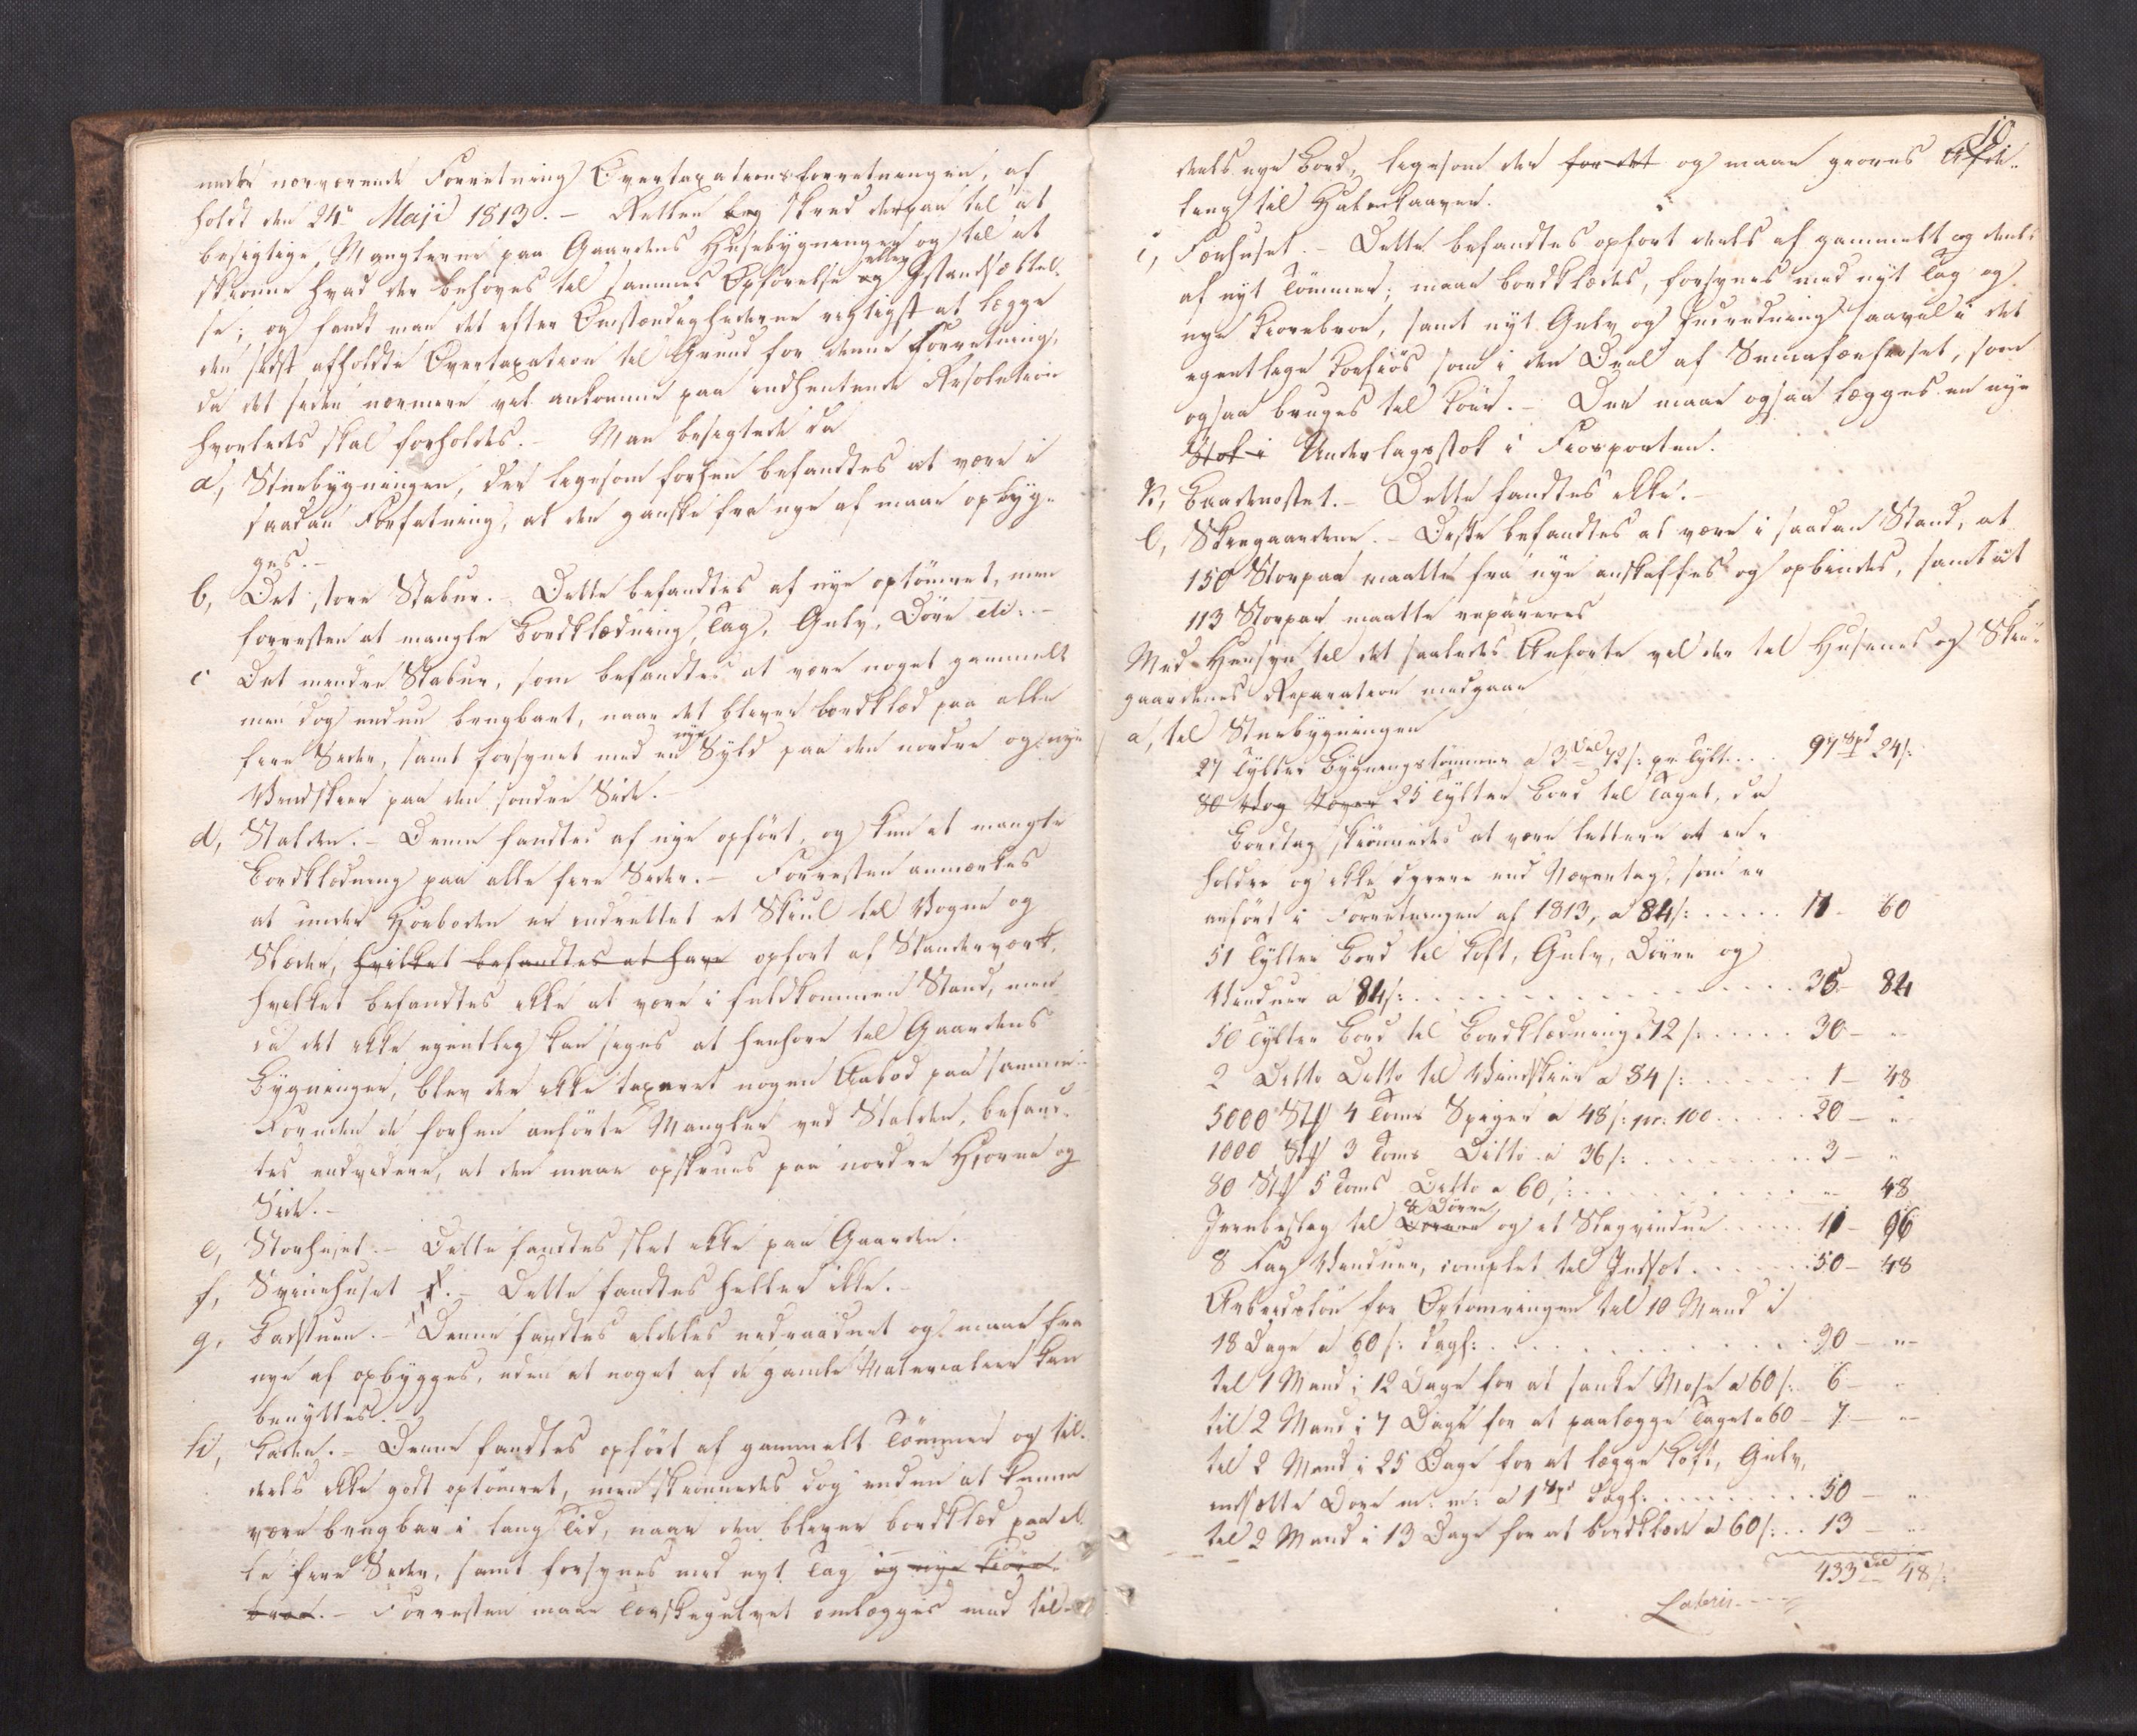 under nærværende Forretning Overtaxationsforretningen, af
holdt den 24de Maji 1813. – Retten beg skred derpaa til at
besigtige Manglerne paa Gaardens Huusebygninger og til at
skiønne hvad der behøves til sammes Opførelse og eller Istandsættel-
se; og fandt man det efter Omstændighederne rigtigst at lægge
den sidst afholdte Overtaxation til Grund for denne Forretning,
da det siden nærmere vil ankomme paa indhentende Resolution
hvorledes skal forholdes. – Man besigtede da
a, Stuebygningen, der ligesom forhen befandtes at være i
saadan Forfatning, at den ganske fra nye af maae opbyg-
ges. –
b, Det store Stabur. – Dette befandtes af nye optømret, men
forresten at mangle Bordklædning, Tag, Gulv, Døre etc. –
c Det mindre Stabur, som befandtes at være noget gammelt
men dog endnu brugbart, naar det bliver bordklæd paa alle
fire Sider, samt forsynet med en nye Syld paa den nordre og nye
Vindskeer paa den søndre Side. –
d, Stalden. – Denne fandtes af nye opført, og kun at mangle
Bordklædning paa alle fire Sider. – Forresten anmærkes
at under Høeboden er indrettet et Skiul til Vogne og
Slæder, hvilket befandtes at have opført af Standerværk,
hvilket befandtes ikke at være i fuldkommen Stand, men
da det ikke egentlig kan siges at henhøre til Gaardens
Bygninger, blev der ikke taxeret nogen Aabod paa samme. –
Foruden de forhen anførte Mangler ved Stalden, befand-
tes endvidere, at den maae opskrues paa nordre Hjørne og
Side. –
e, Storhuset. – Dette fandtes slet ikke paa Gaarden.
f, Sviinehuset. – Dette fandtes heller ikke.
g, Badstuen. – Denne fandtes aldeles nedraadnet og maae fra
nye af opbygges, uden at noget af de gamle Materialier kan
benyttes. –
h, Laden. – Denne fandtes opført af gammelt Tømmer og til-
deels ikke godt optømret, men skiønnedes dog endnu at kunne
være brugbar i lang Tid, naar den bliver bordklæd paa al-
le fire Sider, samt forsynes med nyt Tag og nye Kiøre-
broe. – Forresten maae Tærskegulvet omlægges med til-
10
deels nye Bord, ligesom der for det og maae giøres Afde-
ling til Halmhaaven.
i, Fæehuset. – Dette befandtes opført deels af gammelt og deels
af nyt Tømmer; maae bordklædes, forsynes med nyt Tag og
nye Kiørebroe, samt nyt Gulv og Indredning saavel i det
egentlige Koefiøs som i den Deel af Smaafæehuset, som
ogsaa bruges til Køer. – Der maae ogsaa lægges en nye
Stok i Underlagsstok i Fiøsporten.
k, Baadenostet. – Dette fandtes ikke. –
l, Skiegaardene. – Disse befandtes at være i saadan Stand, at
150 Storpar maatte fra nye anskaffes og opbindes, samt at
113 Storpar maatte repareres
Med Hensyn til det saaledes Anførte vil der til Husenes og Skie-
gaardenes Reparation medgaae
a, til Stuebygningen
27 Tylter Bygningstømmer a 3 Dal 72 s: pr Tylt . . . 97 Spd 24 s:
80 Vog Næver 25 Tylter Bord til Taget, da
Bordtag skiønnedes at være lettere at er-
holde og ikke dyrere end Nævertag, som er
anført i Forretningen af 1813, a 84 s: . . . . . 11 – 60
51 Tylter Bord til Loft, Gulv, Dørre og
Vinduer a 84 s: . . . . . . . . . . . . . 35 – 84
50 Tylter Bord til Bordklædning a 72 s: . . . . . 30 – "
2 Ditto Ditto til Vindskeer a 84 s: . . . . . . 1 – 48
5000 Stk 4 Toms Spiger a 48 s: pr: 100 . . . . . 20 – "
1000 Stk 3 Toms Ditto a 36 s: . . . . . . . . 3 – "
80 Stk 5 Toms Ditto a 60 s: . . . . . . . . . " 48
Jernbeslag til 8 Dørre og et Slagvindue . . . . . 11 – 96
8 Fag Vinduer, complet til Indsat . . . . . . 50 – 48
Arbeidsløn for Optømringen til 10 Mand i
18 Dage a 60 s: dagl: . . . . . . . . . . . 90 – "
til 1 Mand i 12 Dage for at sanke Mose a 60 s: 6 – "
til 2 Mand i 7 Dage for at paalægge Taget a 60 – 7 – "
til 2 Mand i 25 Dage for at lægge Loft, Gulv,
indsætte Døre m: m: a 1 Spd dagl: . . . . . . . 50 – "
til 2 Mand i 13 Dage for at bordklæde a 60 s: . . 13 – "
433 Dal 48 s:
Lateris